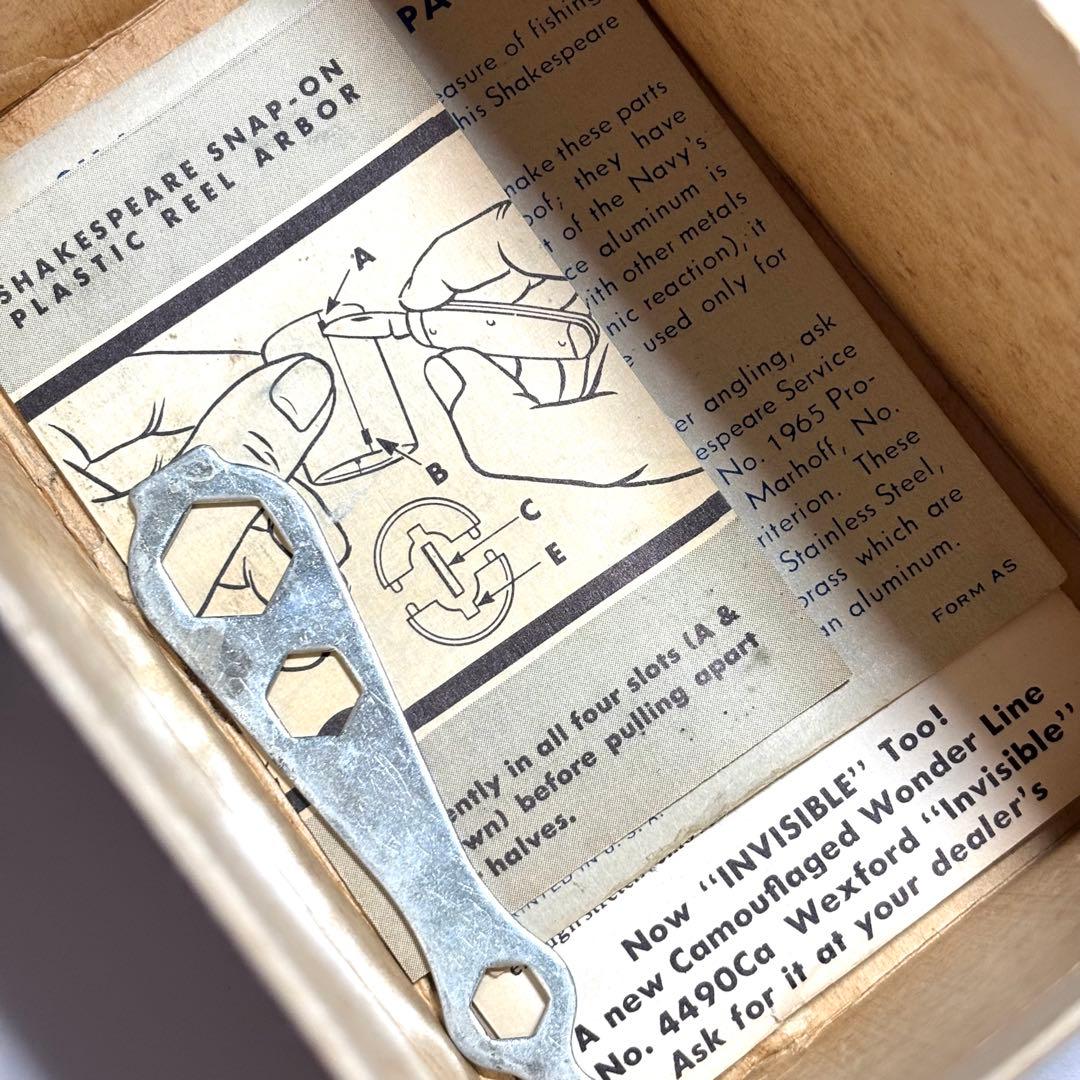 SHAKESPEARE SNAP-ON
PLASTIC REEL ARBOR
A
B
C
E
in all four slots (A &
before pulling apart
halves.
of fishing
Shakespeare
these parts
they have
of the Navy's
aluminum is
with other metals
reaction), it
used only for
angling, ask
Service
No. 1965 Pro-
Marhoff, No.
These
Stainless Steel,
which are
aluminum.
FORM AS
Now "INVISIBLE" Too!
A new Camouflaged Wonder Line
No. 4490Ca Wexford "Invisible"
Ask for it at your dealer's